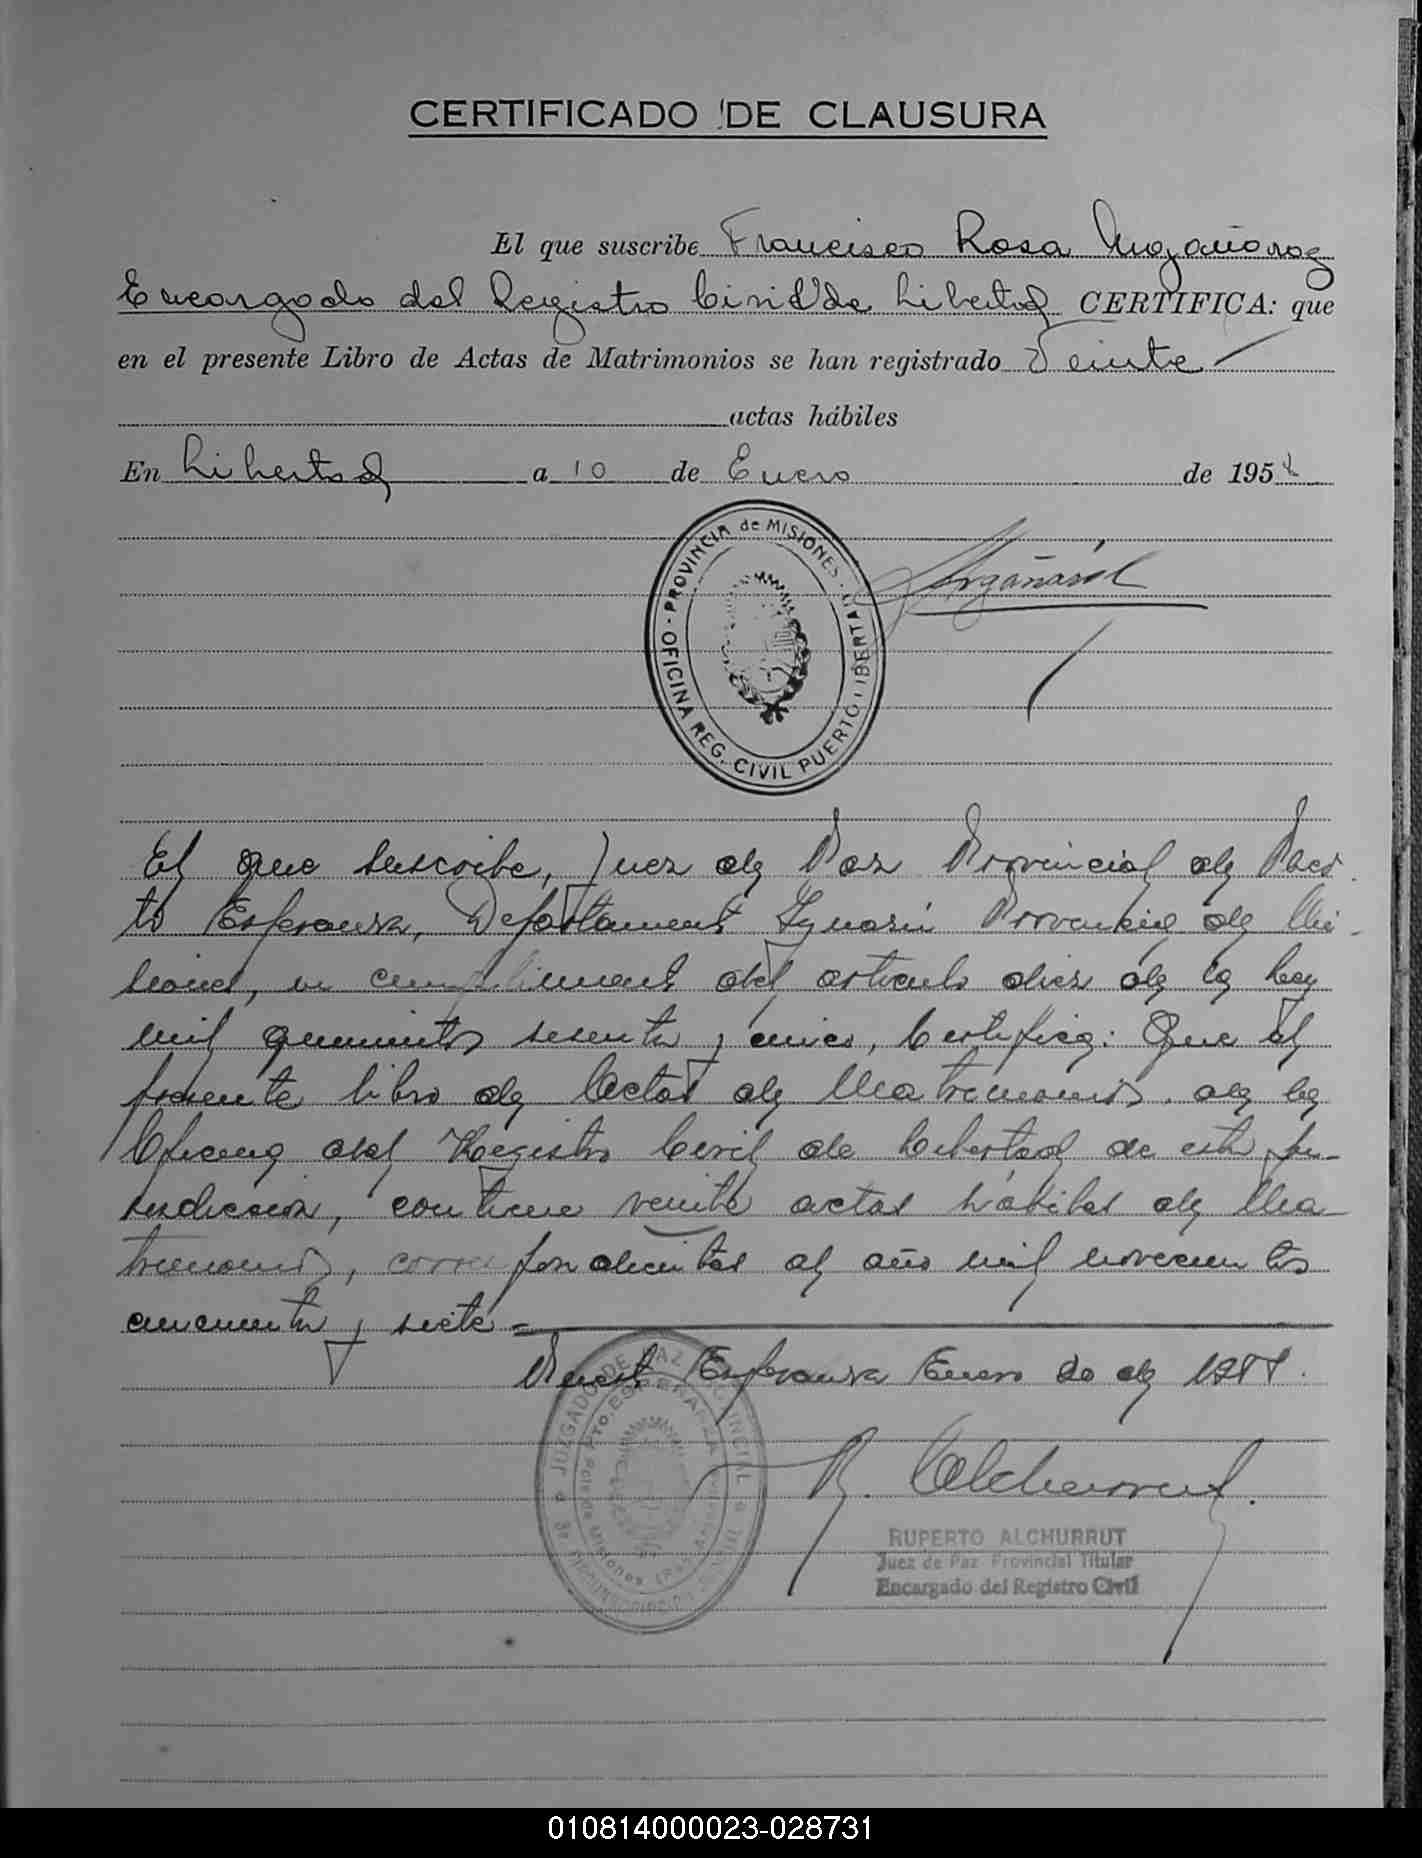 CERTIFICADO DE CLAUSURA
El que suscribe Francisco Rosa
Encargado del Registro Civil de Libertad CERTIFICA: que
en el presente Libro de Actas de Matrimonios se han registrado Veinte
actas hábiles
En Libertad a 10 de Enero de 1958
PROVINCIA de MISIONES - OFICINA REG. CIVIL PUERTO LIBERTAD
Argañaráz
El que suscribe, Juez de Paz Provincial de Puer
to Esperanza, Departamento Iguazú Provincia de Mi-
siones, en cumplimiento del artículo diez de la Ley
mil quinientos sesenta y cinco, Certifica: Que el
presente libro de Actas de Matrimonios, de la
Oficina del Registro Civil de Libertad de esta ju-
risdicción, contiene veinte actas hábiles de Ma-
trimonios, correspondientes al año mil novecientos
cincuenta y siete =
Puerto Esperanza Enero 20 de 1958.
JUZGADO DE PAZ PROVINCIAL
PTO. ESPERANZA
Misiones
R. Alchurrut.
RUPERTO ALCHURRUT
Juez de Paz Provincial Titular
Encargado del Registro Civil
010814000023-028731